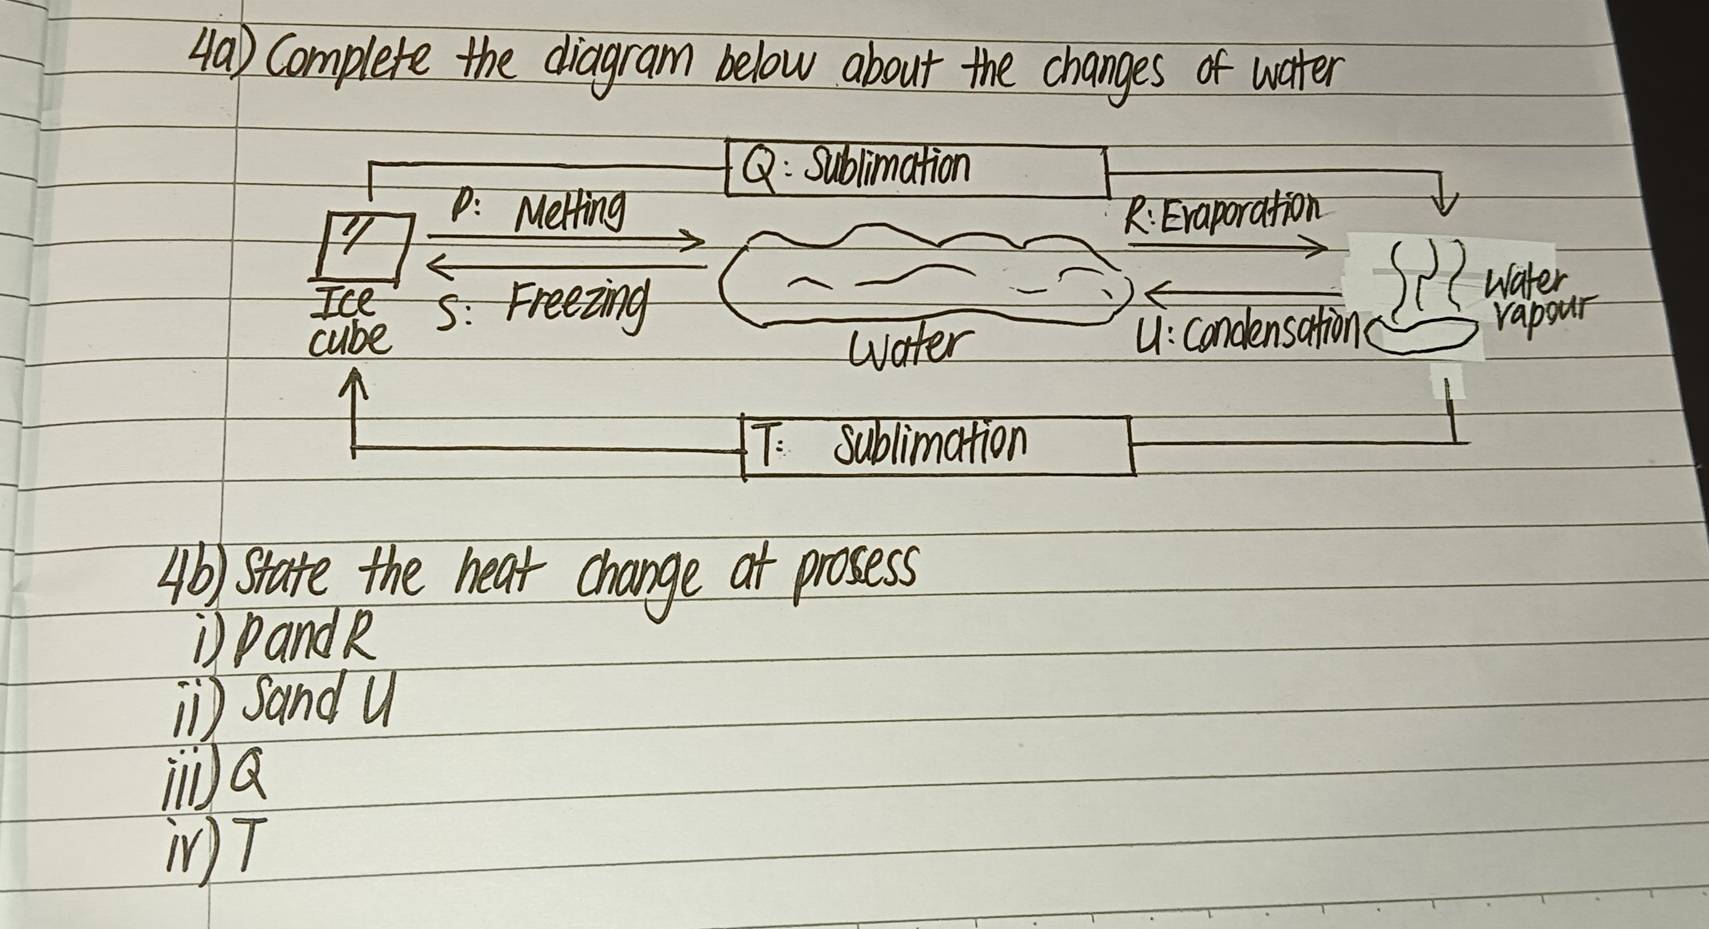 4a) Complete the diagram below about the changes of water
Q: Sublimation
P: Melting
R: Evaporation
Ice cube
S: Freezing
Water
U: Condensation
Water vapour
T: Sublimation
4b) State the heat change at prosess
i) P and R
ii) S and U
iii) Q
iv) T